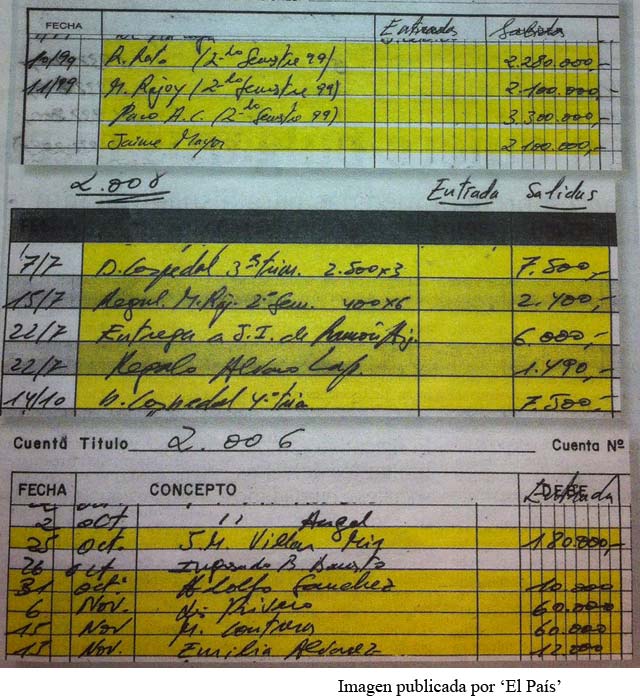 FECHA Entradas Salidas
10/99 R. Rato (2-do Semestre 99) 2.280.000,-
11/99 M. Rajoy (2-do Semestre 99) 2.100.000,-
Paco A.C. (2-do Semestre 99) 3.300.000,-
Jaime Mayor 2.100.000,-
2.008 Entrada Salidas
7/7 D. Cospedal 3er trim. 2.500x3 7.500,-
15/7 Regul. M. Raj. 2º Sem. 400x6 2.400,-
22/7 Entrega a J.I. de 6.000,-
22/7 Regalo Alvaro Lap. 1.490,-
14/10 D. Cospedal 4º trim 7.500,-
Cuenta Título 2.006 Cuenta Nº
FECHA CONCEPTO DEBE Entrada
2 oct. " Angel
25 oct. J.M. Villar Mir 180.000,-
26 oct Ingresado B.
31 oct. Adolfo Sanchez 10.000
6 Nov. Luis Rivero 60.000
15 Nov M. Contreras 60.000
15 Nov. Emilio Alvarez 12.000
Imagen publicada por ‘El País’